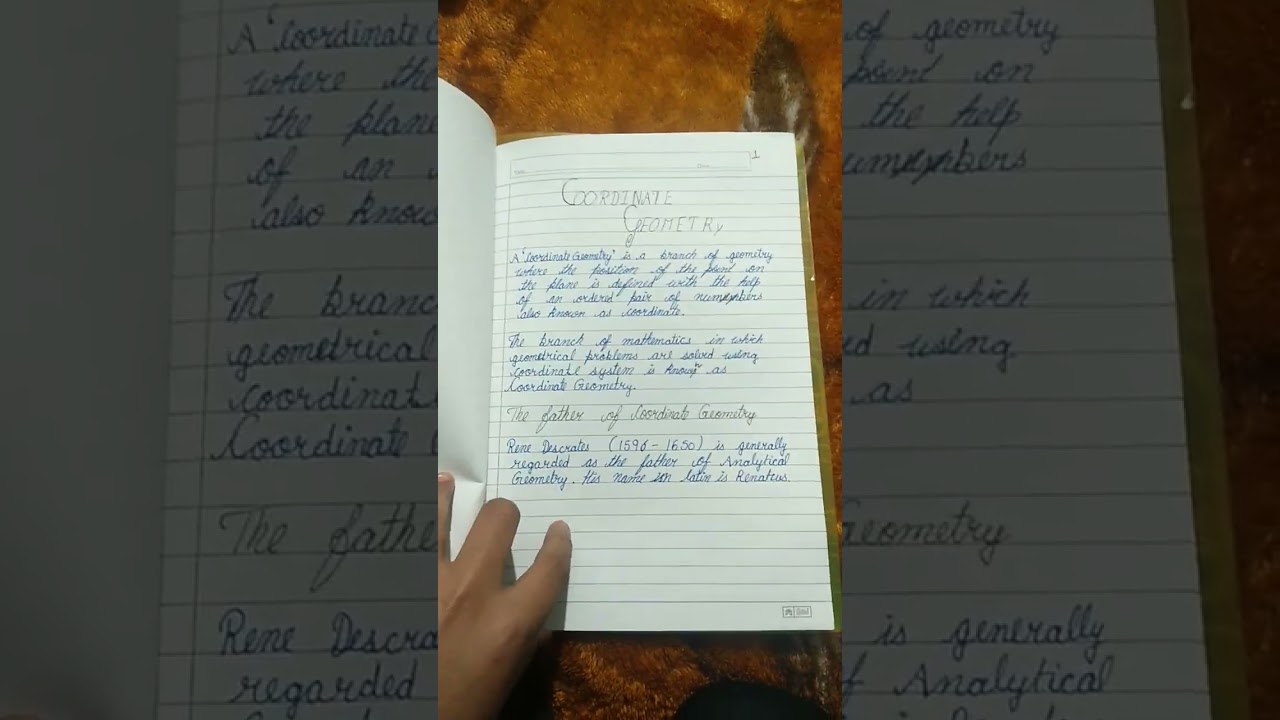 1
COORDINATE
GEOMETRY
A 'Coordinate Geometry' is a branch of geometry
where the position of the point on
the plane is defined with the help
of an ordered pair of numbers
also known as coordinate.
The branch of mathematics in which
geometrical problems are solved using
coordinate system is known as
Coordinate Geometry.
The father of Coordinate Geometry
Rene Descrates (1596 - 1650) is generally
regarded as the father of Analytical
Geometry. His name in latin is Renatus.